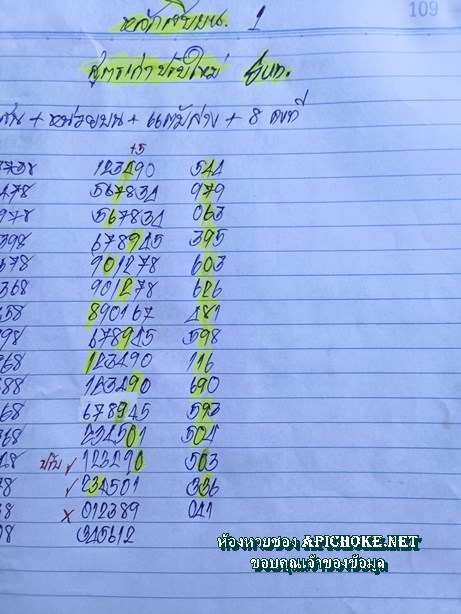 109
หลักสิบบน. 1
สูตรเก่าปรับใหม่
+ หน่วยบน + แต้มล่าง + 8 คงที่
+5
3738 123490 544
478 567834 979
978 567834 063
398 678945 395
678 901278 603
368 901278 626
58 890167 481
98 678945 598
68 123490 116
88 123490 690
68 678945 593
368 234501 504
28 ปรับ ✓ 123490 503
78 ✓ 234501 336
38 x 012389 041
08 345612
ห้องหวยซอง APICHOKE.NET
ขอบคุณเจ้าของข้อมูล